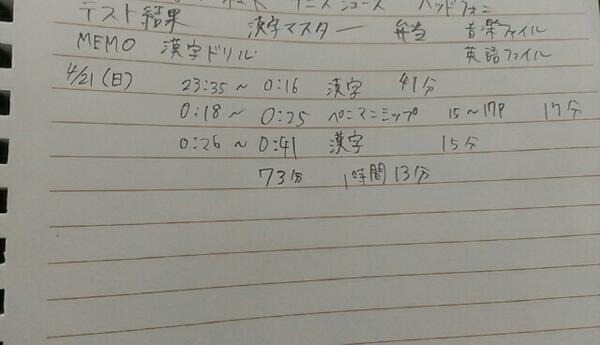 テニスシューズ ヘッドフォン
テスト結果 漢字マスター 弁当 音楽ファイル
MEMO 漢字ドリル 英語ファイル
4/21(日) 23:35~0:16 漢字 41分
0:18~0:25 ペニマニシップ 15~17P 17分
0:26~0:41 漢字 15分
73分 1時間13分